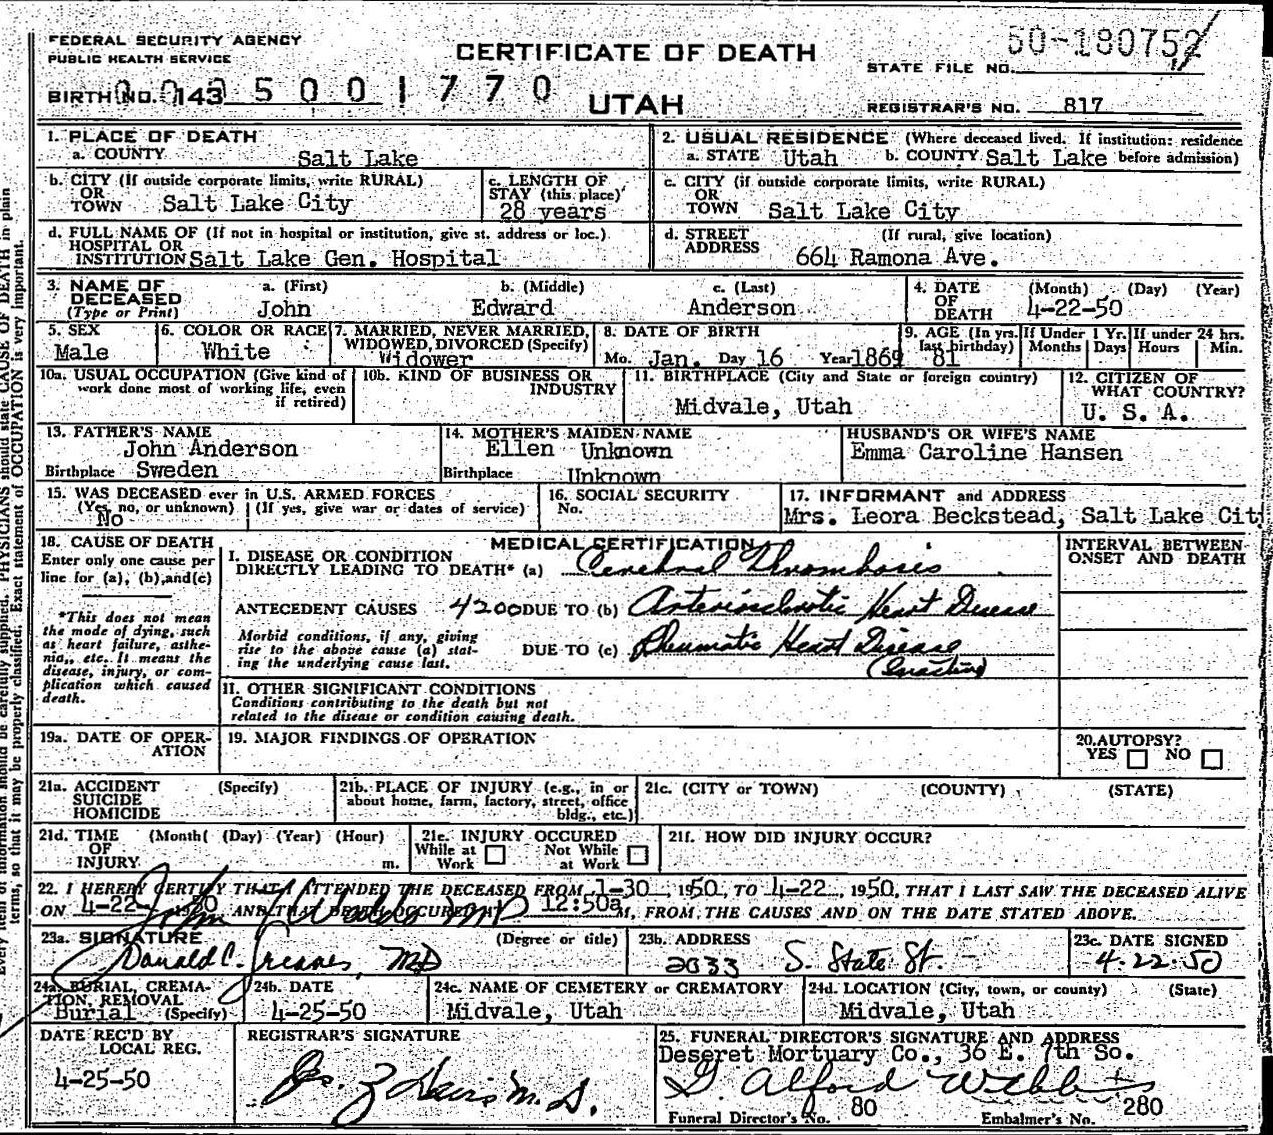 FEDERAL SECURITY AGENCY
PUBLIC HEALTH SERVICE
CERTIFICATE OF DEATH
UTAH
50-180752
STATE FILE NO.
BIRTH NO. 143 5001770
REGISTRAR'S NO. 817
1. PLACE OF DEATH
a. COUNTY Salt Lake
2. USUAL RESIDENCE (Where deceased lived. If institution: residence
a. STATE Utah b. COUNTY Salt Lake before admission)
b. CITY (If outside corporate limits, write RURAL)
OR
TOWN Salt Lake City
c. LENGTH OF
STAY (this place)
28 years
c. CITY (if outside corporate limits, write RURAL)
OR
TOWN Salt Lake City
d. FULL NAME OF (If not in hospital or institution, give st. address or loc.)
HOSPITAL OR
INSTITUTION Salt Lake Gen. Hospital
d. STREET (If rural, give location)
ADDRESS 664 Ramona Ave.
3. NAME OF
DECEASED
(Type or Print)
a. (First) b. (Middle) c. (Last)
John Edward Anderson
4. DATE (Month) (Day) (Year)
OF
DEATH 4-22-50
5. SEX
Male
6. COLOR OR RACE
White
7. MARRIED, NEVER MARRIED,
WIDOWED, DIVORCED (Specify)
Widower
8. DATE OF BIRTH
Mo. Jan. Day 16 Year 1869
9. AGE (In yrs. last birthday) 81
If Under 1 Yr. Months Days
If under 24 hrs. Hours Min.
10a. USUAL OCCUPATION (Give kind of
work done most of working life, even
if retired)
10b. KIND OF BUSINESS OR
INDUSTRY
11. BIRTHPLACE (City and State or foreign country)
Midvale, Utah
12. CITIZEN OF
WHAT COUNTRY?
U. S. A.
13. FATHER'S NAME
John Anderson
Birthplace Sweden
14. MOTHER'S MAIDEN NAME
Ellen Unknown
Birthplace Unknown
HUSBAND'S OR WIFE'S NAME
Emma Caroline Hansen
15. WAS DECEASED ever in U.S. ARMED FORCES
(Yes, no, or unknown) (If yes, give war or dates of service)
No
16. SOCIAL SECURITY
No.
17. INFORMANT and ADDRESS
Mrs. Leora Beckstead, Salt Lake Cit
18. CAUSE OF DEATH
Enter only one cause per
line for (a), (b), and (c)
*This does not mean
the mode of dying, such
as heart failure, asthe-
nia, etc. It means the
disease, injury, or com-
plication which caused
death.
MEDICAL CERTIFICATION
I. DISEASE OR CONDITION
DIRECTLY LEADING TO DEATH* (a) Cerebral Thrombosis
ANTECEDENT CAUSES 4200 DUE TO (b) Arteriosclerotic Heart Disease
Morbid conditions, if any, giving
rise to the above cause (a) stat-
ing the underlying cause last.
DUE TO (c) Rheumatic Heart Disease
(Inactive)
INTERVAL BETWEEN
ONSET AND DEATH
II. OTHER SIGNIFICANT CONDITIONS
Conditions contributing to the death but not
related to the disease or condition causing death.
19a. DATE OF OPER-
ATION
19. MAJOR FINDINGS OF OPERATION
20. AUTOPSY?
YES NO
21a. ACCIDENT (Specify)
SUICIDE
HOMICIDE
21b. PLACE OF INJURY (e.g., in or
about home, farm, factory, street, office
bldg., etc.)
21c. (CITY or TOWN) (COUNTY) (STATE)
21d. TIME (Month) (Day) (Year) (Hour)
OF
INJURY m.
21e. INJURY OCCURED
While at Work Not While at Work
21f. HOW DID INJURY OCCUR?
22. I HEREBY CERTIFY THAT I ATTENDED THE DECEASED FROM 1-30, 1950, TO 4-22, 1950, THAT I LAST SAW THE DECEASED ALIVE
ON 4-22 1950 AND THAT DEATH OCCURED AT 12:50a M., FROM THE CAUSES AND ON THE DATE STATED ABOVE.
23a. SIGNATURE (Degree or title)
Donald C. Greaves, MD
23b. ADDRESS
2033 S. State St.
23c. DATE SIGNED
4.22.50
24a. BURIAL, CREMA-
TION, REMOVAL
Burial (Specify)
24b. DATE
4-25-50
24c. NAME OF CEMETERY or CREMATORY
Midvale, Utah
24d. LOCATION (City, town, or county) (State)
Midvale, Utah
DATE REC'D BY
LOCAL REG.
4-25-50
REGISTRAR'S SIGNATURE
25. FUNERAL DIRECTOR'S SIGNATURE AND ADDRESS
Deseret Mortuary Co., 36 E. 7th So.
Funeral Director's No. 80 Embalmer's No. 280